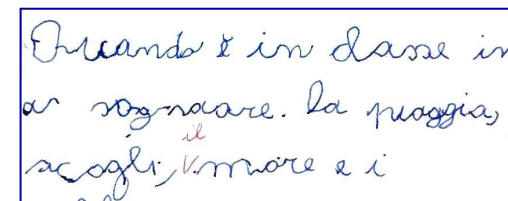 Quando è in classe in
a sognare. La pioggia,
scogli, il mare e i